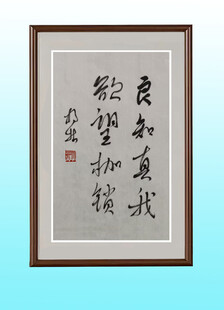 良知真我
欲望枷锁